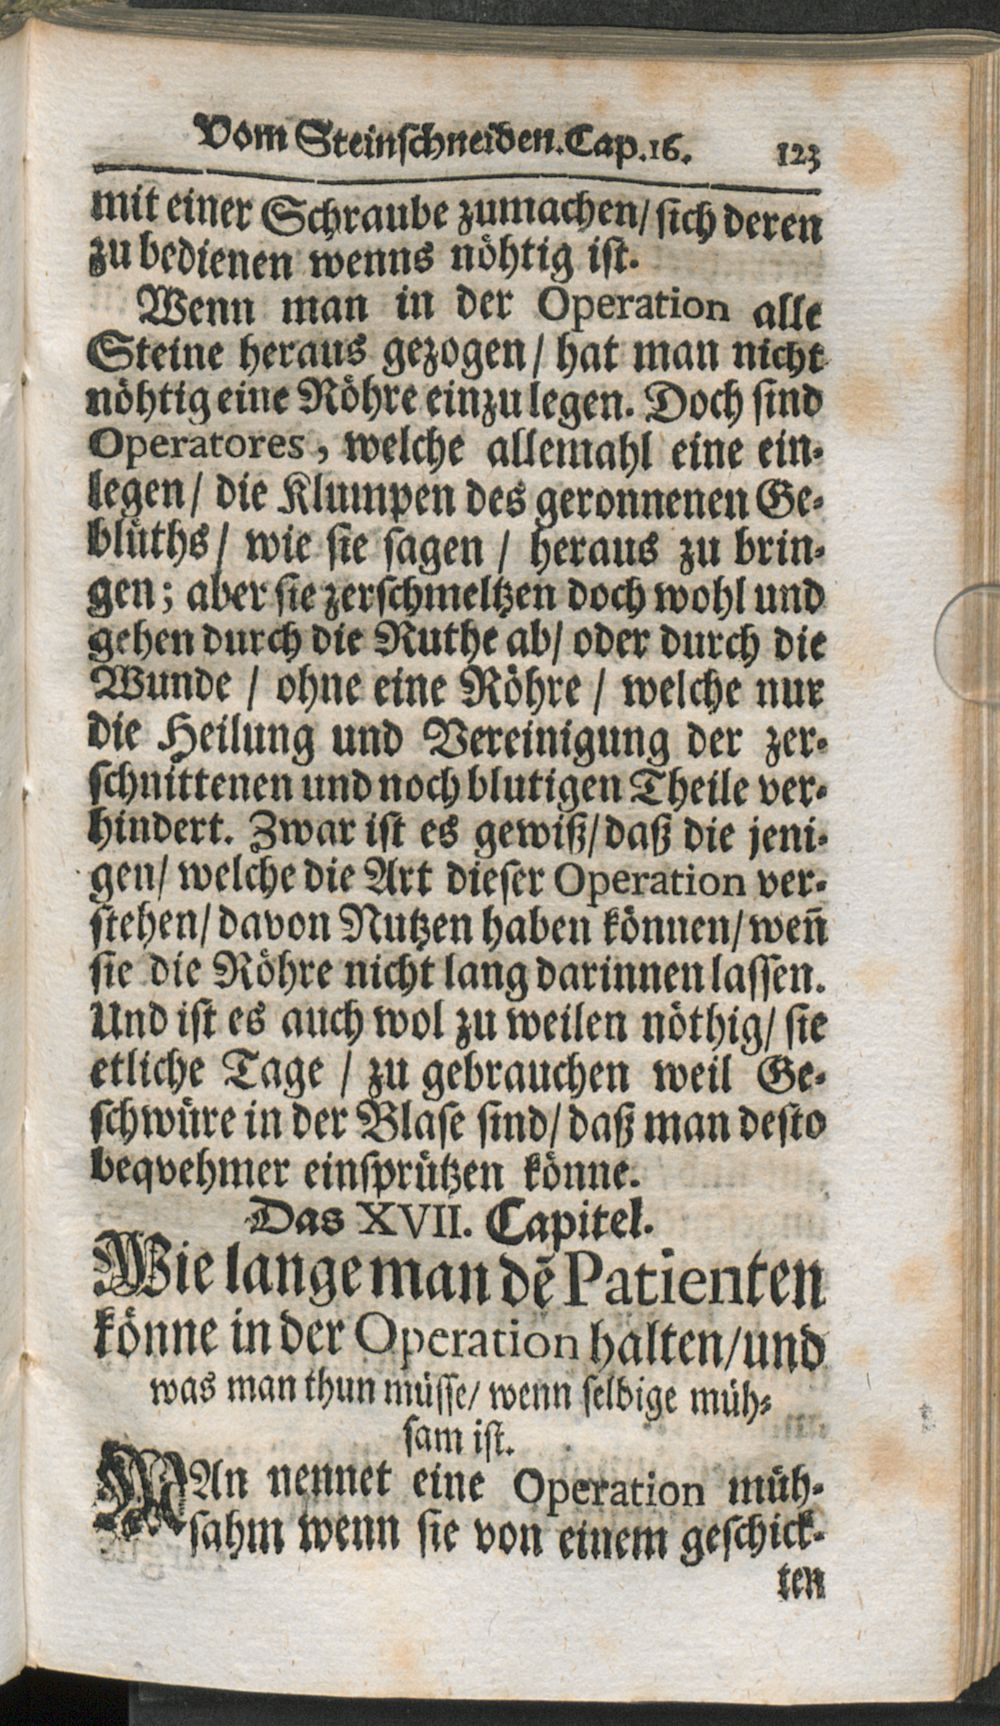 Vom Steinschneiden. Cap. 16. 123
mit einer Schraube zumachen/ sich deren
zu bedienen wenns nöhtig ist.
Wenn man in der Operation alle
Steine heraus gezogen/ hat man nicht
nöhtig eine Röhre einzulegen. Doch sind
Operatores, welche allemahl eine ein-
legen/ die Klumpen des geronnenen Ge-
blüths/ wie sie sagen/ heraus zu brin-
gen; aber sie zerschmeltzen doch wohl und
gehen durch die Ruthe ab/ oder durch die
Wunde/ ohne eine Röhre/ welche nur
die Heilung und Vereinigung der zer-
schnittenen und noch blutigen Theile ver-
hindert. Zwar ist es gewiß/ daß die jeni-
gen/ welche die Art dieser Operation ver-
stehen/ davon Nutzen haben können/ weñ
sie die Röhre nicht lang darinnen lassen.
Und ist es auch wol zu weilen nöthig/ sie
etliche Tage/ zu gebrauchen weil Ge-
schwüre in der Blase sind/ daß man desto
beqvehmer einsprützen könne.
Das XVII. Capitel.
Wie lange man dẽ Patienten
könne in der Operation halten/und
was man thun müsse/ wenn selbige müh-
sam ist.
MAn nennet eine Operation müh-
sahm wenn sie von einem geschick-
ten